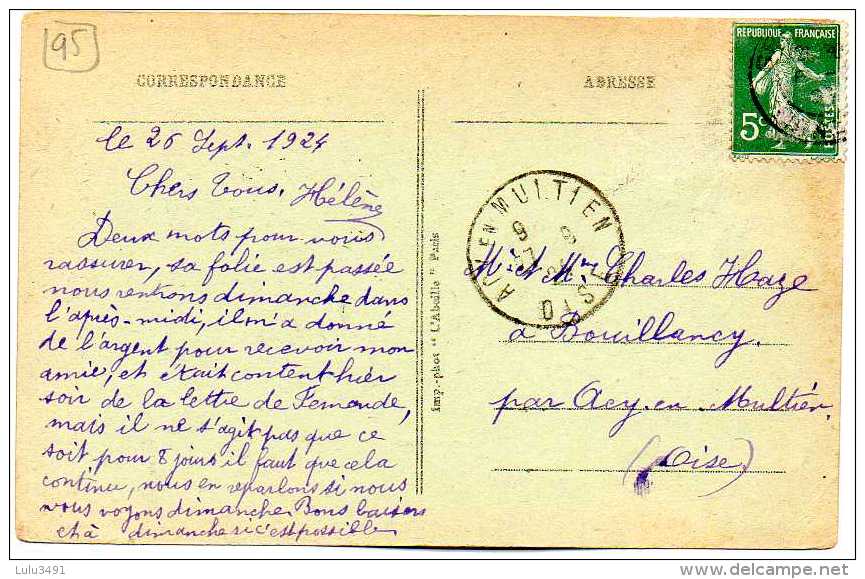 95
CORRESPONDANCE
ADRESSE
RÉPUBLIQUE FRANÇAISE
5c
POSTES
le 26 Sept. 1924
Chers Tous,
Hélène
Deux mots pour vous
rassurer, sa folie est passée
nous rentrons dimanche dans
l'après-midi, il m'a donné
de l'argent pour recevoir mon
amie, et était content hier
soir de la lettre de Fernande,
mais il ne s'agit pas que ce
soit pour 8 jours il faut que cela
continue, nous en reparlons si nous
nous voyons dimanche Bons baisers
et à dimanche si c'est possible
Imp.-phot "L'Abeille" Paris
ACY EN MULTIEN
OISE
Mr et Mme Charles Haze
à Bouillancy.
par Acy en Multien.
(Oise)
Lulu3491
delcampe.net